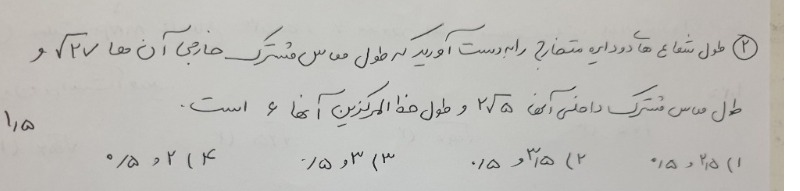 ② طول شعاع های دو دایره متخارج را به دست آورید که طول مماس مشترک خارجی آن ها √۲۷ و
طول مماس مشترک داخلی آنها ۲√۵ و طول خط المرکزین آنها ۶ است.
۱٫۵
۱) ۲٫۵ و ۰٫۵ ۲) ۳٫۵ و ۰٫۵ ۳) ۳ و ۰٫۵ ۴) ۲ و ۰٫۵